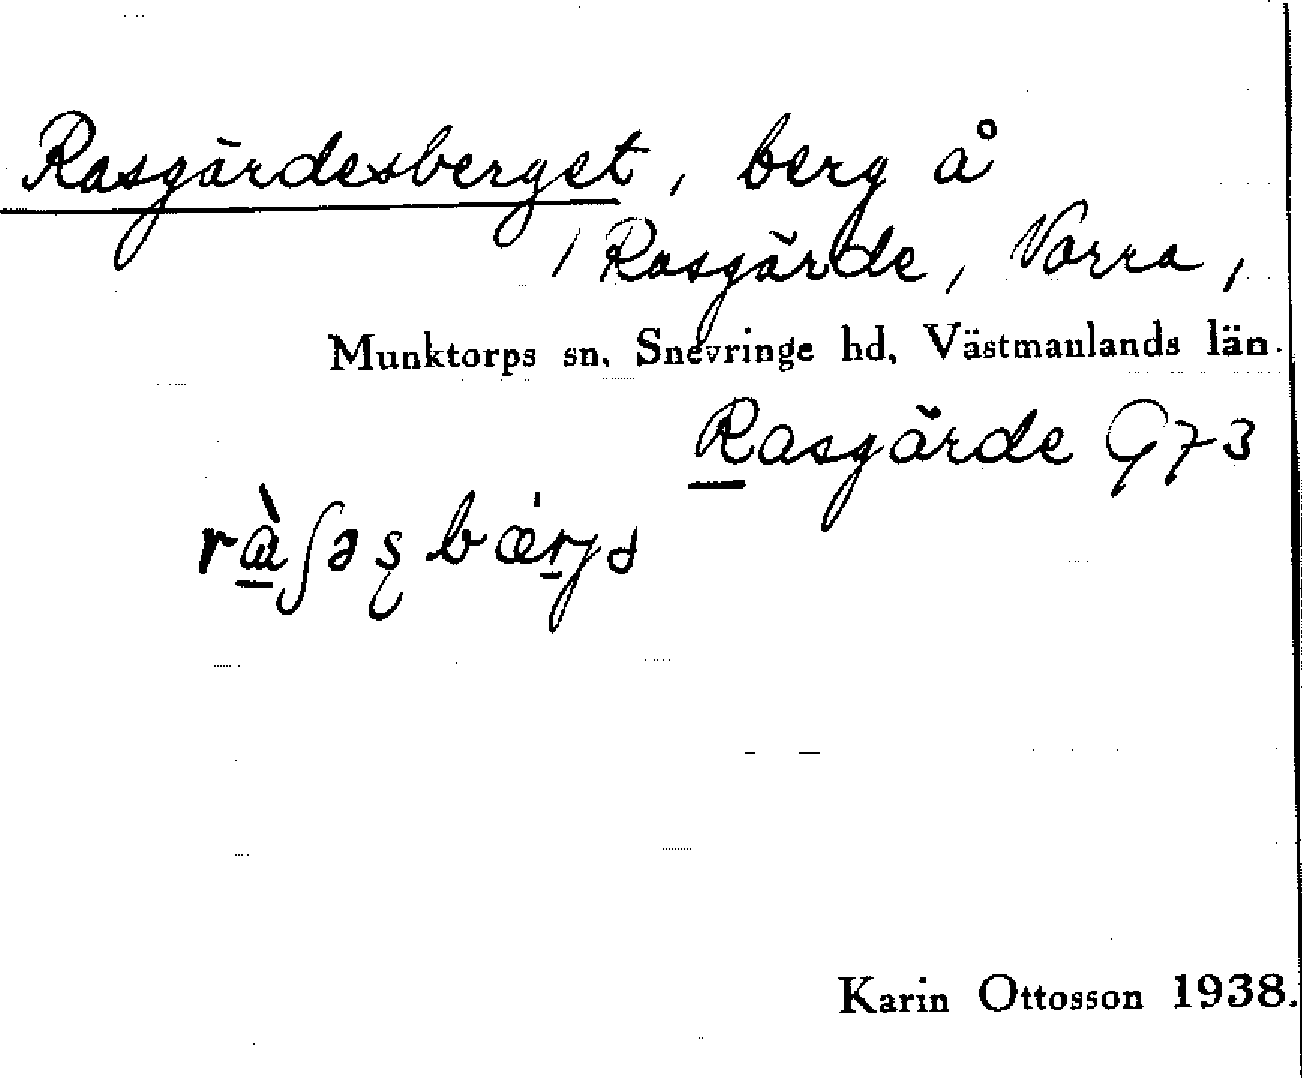 Rasgärdesberget, berg å
/ Rasgärde, Norra,
Munktorps sn, Snevringe hd, Västmanlands län.
Rasgärde G73
Karin Ottosson 1938.